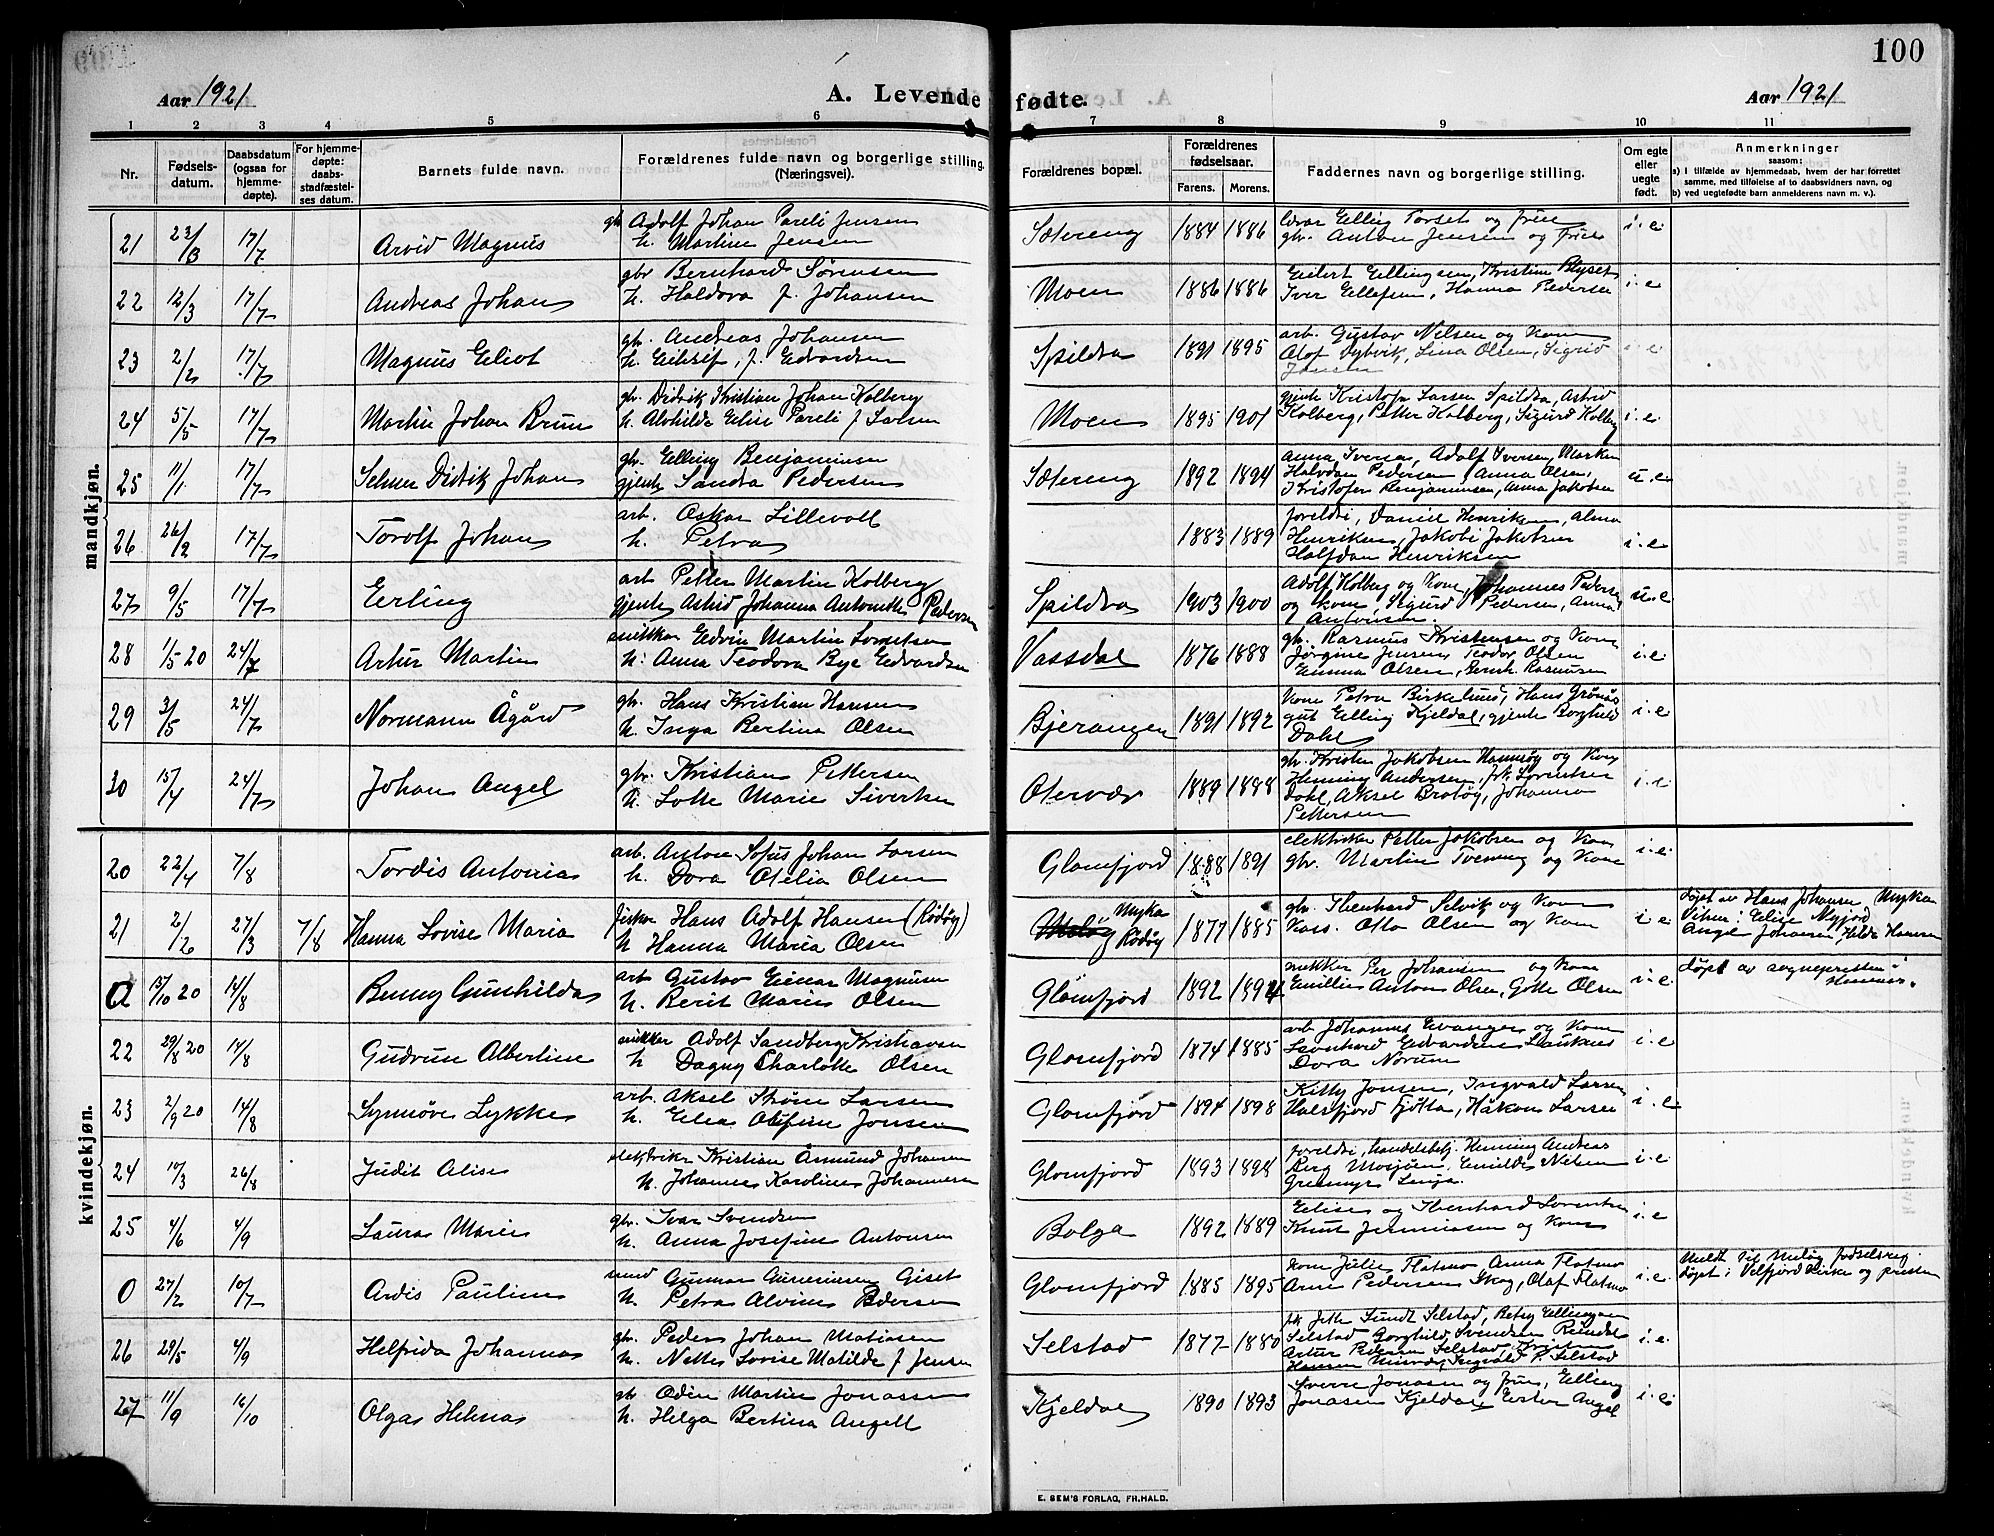 100
Aar 1921
A. Levende fødte.
Aar 1921
1 2 3 4 5 6 7 8 9 10 11
Nr.
Fødsels-
datum.
Daabsdatum
(ogsaa for
hjemme-
døpte).
For hjemme-
døpte:
daabs-
stadfæstel-
ses datum.
Barnets fulde navn.
Forældrenes fulde navn og borgerlige stilling.
(Næringsvei).
Forældrenes bopæl.
Forældrenes
fødselsaar.
Farens. Morens.
Faddernes navn og borgerlige stilling.
Om egte
eller
uegte
født.
Anmerkninger
saasom:
a) I tilfælde av hjemmedaab, hvem der har forrettet
samme, med tilføielse af to daabsvidners navn, og
b) ved uegtefødte barn anmelderens navn m. v.).
mandkjøn.
21 23/3 17/7 Arvid Magnus
gb Adolf Johan Pareli Jensen
h. Martine Jensen
Sætereng 1884 1886
Elling Torset og frue
gbr. Anton Jensen og Frue
i.e.
22 12/3 17/7 Andreas Johan
gbr Bernhard Sørensen
h. Haldora f. Johansen
Moen 1886 1886
Eilert Ellingsen, Kristine Blyset
Iver Ellefsen, Hanna Pedersen
i.e
23 2/2 17/7 Magnus Eliot
gb. Andreas Johansen
h. Eilisif, f. Edvardsen
Spildra 1891 1895
arb. Gustav Nilsen og Kone
Olaf Dybvik, Lina Olsen, Sigrid
Jensen
i.e
24 5/5 17/7 Martin Johan Brun
gb. Didrik Kristian Johan Kolberg
h. Alvhilde Eline Pareli f Larsen
Moen 1895 1901
gjente Kristofa Larsen Spildra, Astrid
Kolberg, Petter Kolberg, Sigurd Kolberg
i.e
25 11/1 17/7 Selmer Didrik Johan
gbr. Elling Benjaminsen
gjente Sandra Pedersen
Sætereng 1892 1894
Anna Iversen, Adolf Iversen,
Halvdan Pedersen, Anna Olsen,
Kristofer Benjaminsen, Anna Jakobsen
u.e
26 26/2 17/7 Torolf Johan
arb. Oskar Lillevoll
h. Petra
1883 1889
foreldri, Daniel Henriksen, Alma
Henriksen, Jakobi Jakobsen
Halfdan Henriksen
i.e
27 9/5 17/7 Erling
arb Petter Martin Kolberg
gjente Astrid Johanna Antonette Pedersen
Spildra 1903 1900
Adolf Kolberg og Kone, Johannes Pedersen
og kone, Sigurd Pedersen, Anna
Antonsen.
u.e
28 1/5 20 24/7 Artur Martin
snekker Edvin Martin Lorentsen
h. Anna Teodora Bye Edvardsen
Vassdal 1876 1888
gb. Rasmus Kristensen og Kone
Jørgine Jensen, Teodor Olsen
Emma Olsen, Bernh. Rasmusen
i.e
29 3/5 24/7 Normann Ågård
gb. Hans Kristian Hansen
h. Inga Bertina Olsen
Bjerangen 1891 1892
Kone Petra Birkelund, Hans Grønås
gut Elling Kjeldal, gjente Borghild
Dahl
i.e
30 15/4 24/7 Johan Angel
gbr. Kristian Pettersen
h. Lotte Marie Sivertsen
Oterver 1889 1888
gb. Kristen Jakobsen Hamnøy og Kone
Henning Andersen, frk. Lorentsen
Dahl, Aksel Bratøy, Johanna
Pettersen
i.e
kvindekjøn.
20 22/4 7/8 Tordis Antonia
arb. Anton Sofus Johan Larsen
h. Dora Otelia Olsen
Glomfjord 1888 1891
elektriker Petter Jakobsen og Kone
gbr. Martin Tverning og Kone
i.e.
21 2/2 27/3 7/8 Hanna Lovise Maria
fisker Hans Adolf Hansen (Rødøy)
h Hanna Maria Olsen
Myken
Rødøy 1877 1885
gb. Ebenhard Selvik og Kone
Kass. Otto Olsen og Kone
i e
døpt av Hans Johansen Myken
Vitner: Elise Myfjord
Angel Johansen, Hilda Hansen
0 15/10 20 14/8 Benny Gunhilda
arb Gustav Einar Magnusen
h. Berit Marie Olsen
Glomfjord 1892 1894
snekker Per Johansen og Kone
Emillie Antons Olsen, Gotte Olsen
i.e
døpt av sogneprestens
22 29/8 20 14/8 Gudrun Albertine
snekker Adolf Sandberg Kristiansen
h Dagny Charlotte Olsen
Glomfjord 1874 1885
arb Johannes Evanger og Kone
Leonhard Edvardsen
Dora Norum
i.e
23 2/9 20 14/8 Synnøve Lykke
arb. Aksel Strøm Larsen
h. Elea Olefine Jonsen
Glomfjord 1894 1898
Kitty Jonsen, Ingvald Larsen
Halsfjord Tjøtta, Håkon Larsen
i.e
24 10/3 26/8 Judit Alise
elektriker Kristian Åsmund Johansen
h. Johanna Karoline Johannesen
Glomfjord 1893 1898
foreldri, handelsbetj. Henning Andreas
Berg Mosjøen, Emilde Nilsen
i.e
25 4/6 4/9 Laura Marie
gbr. Ivar Svendsen
h. Anna Josefine Antonsen
Bolga 1892 1889
Elise og Ebenhard Lorentsen
Knut Jeremiasen og Kone
i.e
0 27/2 10/7 Ardis Pauline
smed Gunnar Giset
h. Petra Alvine Pedersen
Glomfjord 1885 1895
Kone Julie Flatmo Anna Flatmo
Arne Pedersen Skog, Olaf Flatmo
i.e
Meldt til Meløy fødselsreg.
døpt i Velfjord kirke og presten
26 29/5 4/9 Helfrida Johanna
gb. Peder Johan Matiasen
h. Nette Lovise Matilde f Jensen
Selstad 1877 1880
frk. Jette Lundt Selstad, Betsy Ellingsen
Selstad Borghild Svendsen Reindal
Artur Pedersen Selstad, Kristine
Hansen, Ingvald P. Selstad
i.e.
27 11/9 16/10 Olga Helena
gb Odin Martin Jonassen
h. Helga Bertina Angell
Kjeldal 1890 1893
Sverre Jonasen og frue, Elling
Jonasen Kjeldal, Ester Angel
i.e.
E. SEM'S FORLAG, FR.HALD.